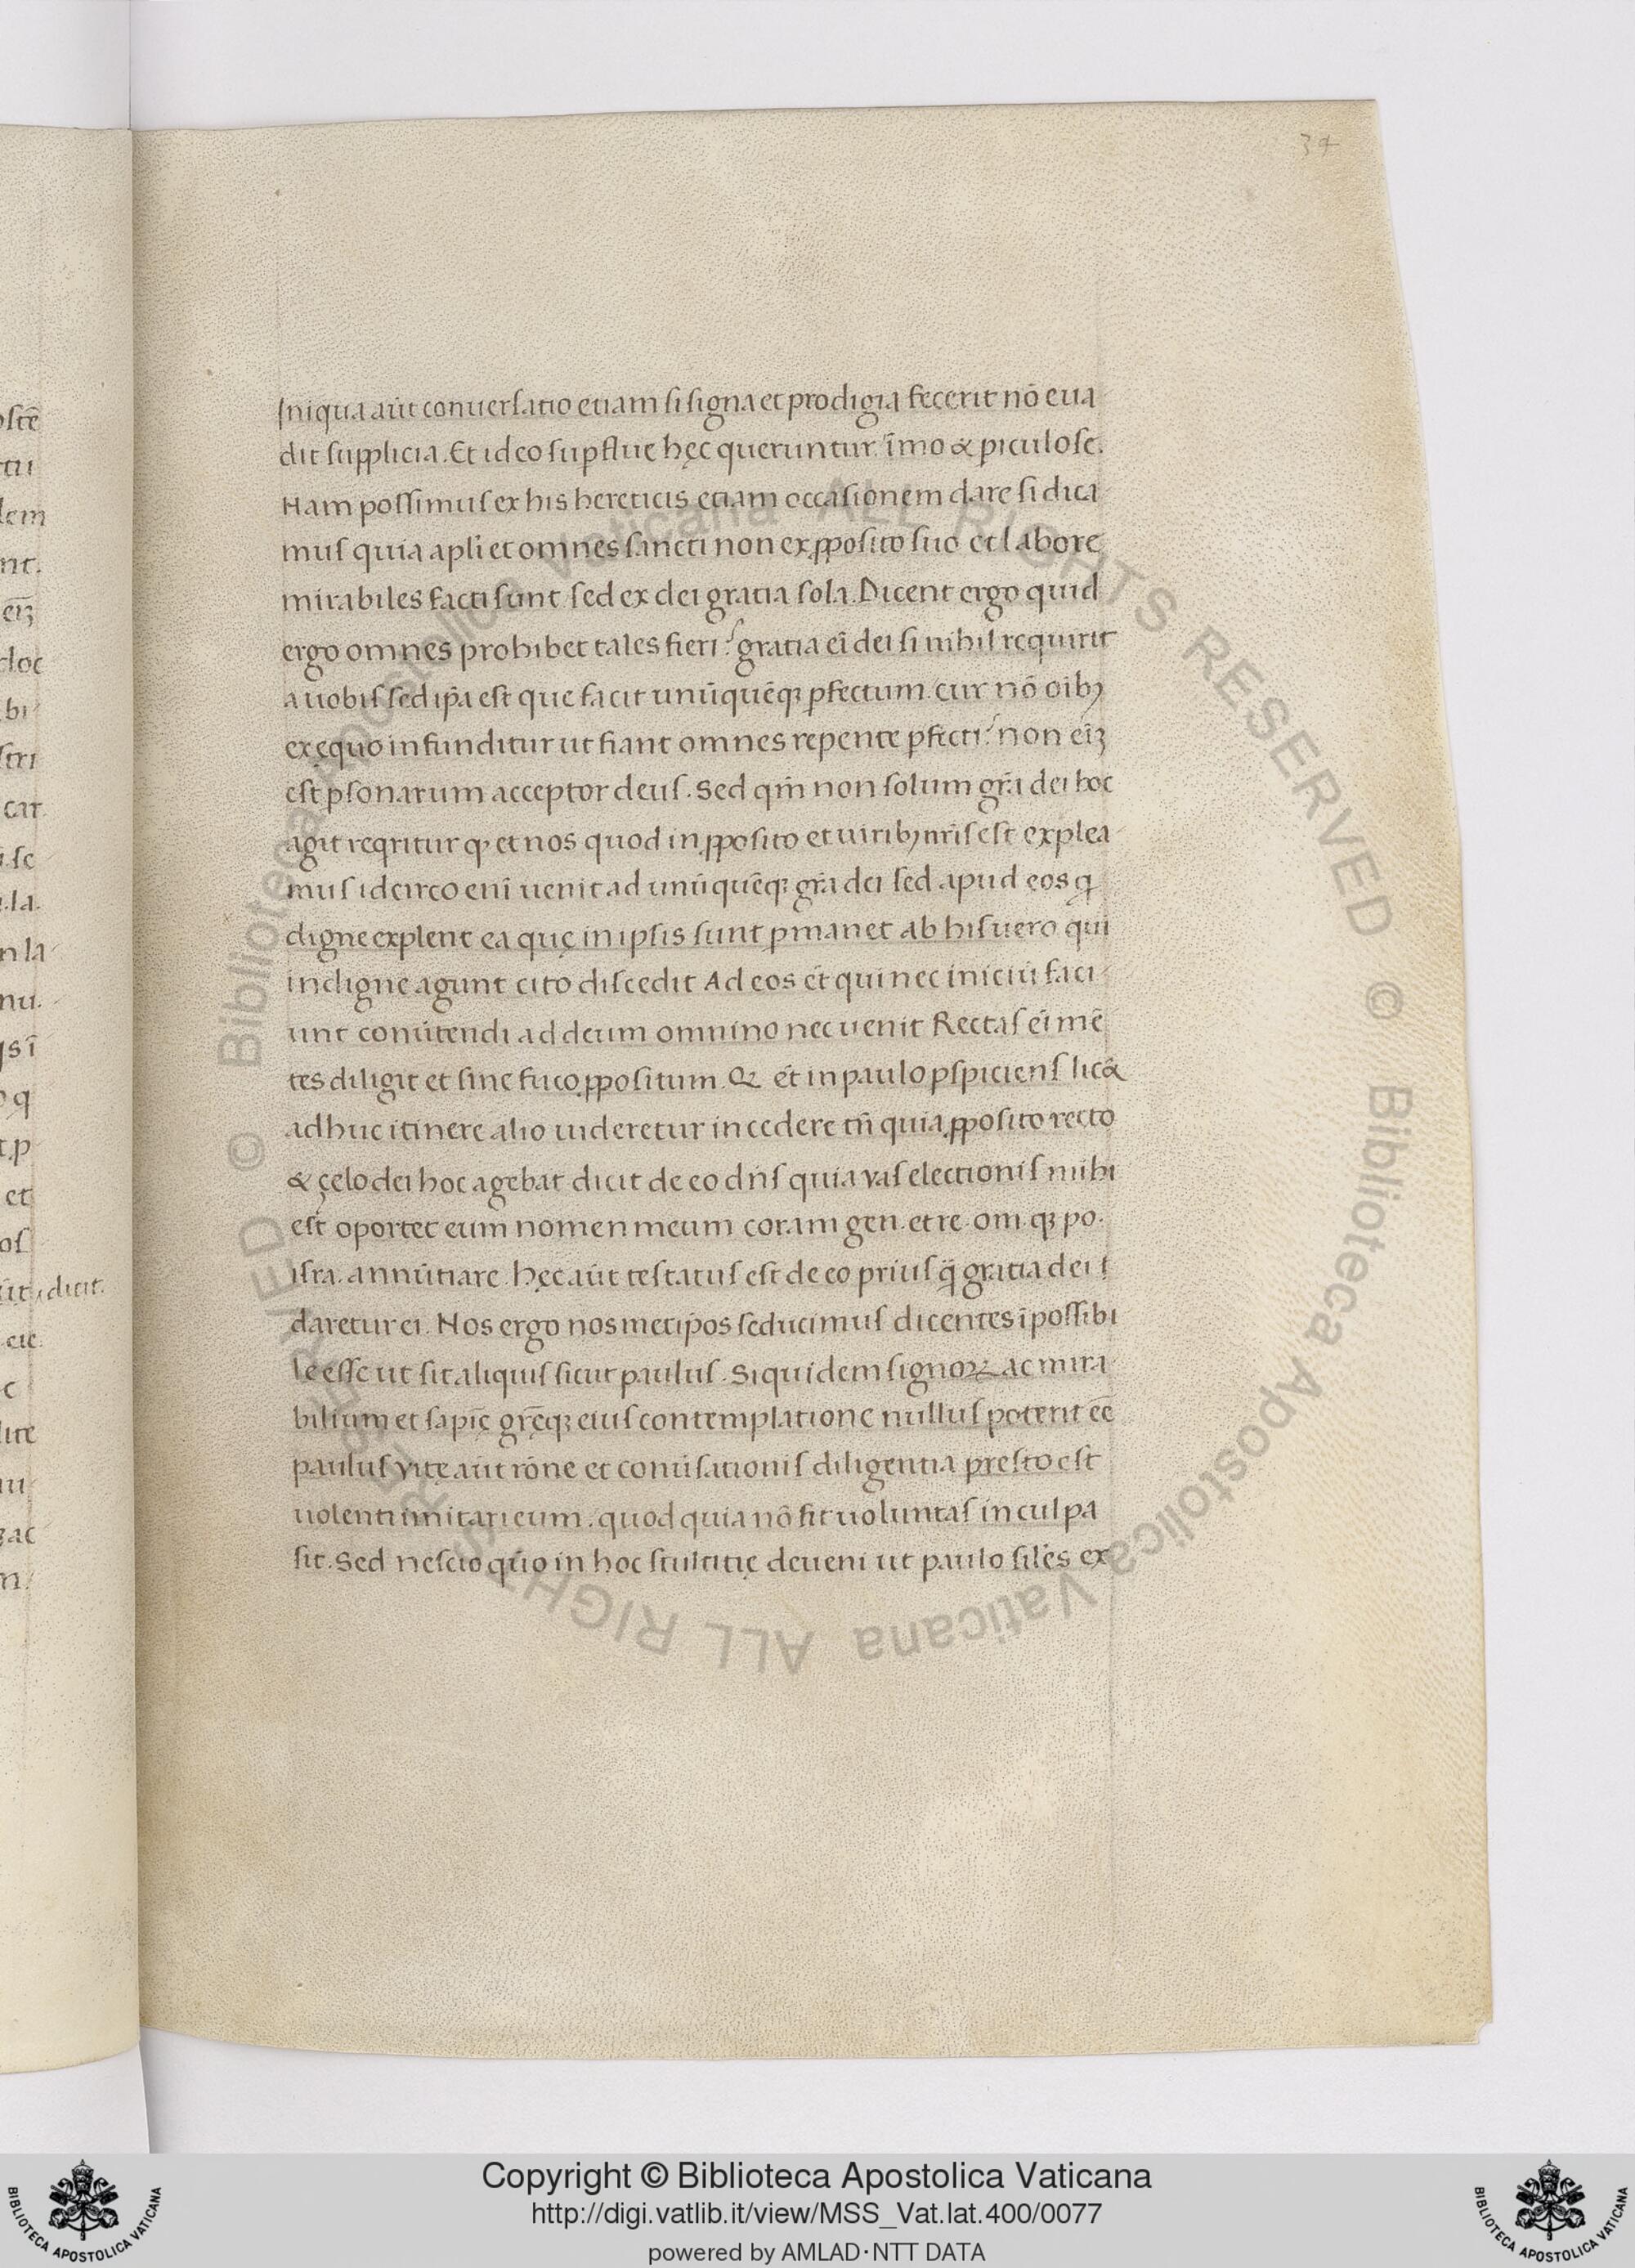 34
Iniqua aūt conuerſatio etiam ſi ſigna et prodigia fecerit nō eua
dit ſupplicia. Et ideo ſuꝑflue hęc queruntur. īmo & ꝑiculoſe.
Nam poſſimuſ ex his hereticis etiam occaſionem dare ſi dica
muſ quia apl̄i et omnes ſancti non ex ꝓpoſito ſuo et labore
mirabiles facti ſunt ſed ex dei gratia ſola. Dicent ergo quid
ergo omnes prohibet tales fieri? gratia ei̅ dei ſi nihil requirit
a uobiſ ſed ip̄a eſt que facit unūquēqꝫ ꝑfectum. cur nō oībꝫ
ex ęquo infunditur ut fiant omnes repente ꝑfecti? non eīꝫ
eſt ꝑſonarum acceptor deuſ. Sed qm̄ non ſolum gr̄a dei hoc
agit reqritur qꝫ et nos quod in ꝓpoſito et uiribꝫ nr̄iſ eſt explea
muſ idcirco enī uenit ad unūquēqꝫ gr̄a dei ſed apud eos q
digne explent ea quę in ipſis ſunt ꝑmanet ab hiſ uero qui
indigne agunt cito diſcedit Ad eos ēt qui nec iniciū faci
unt conūtendi ad deum omnino nec uenit Rectaſ eī mē
tes diligit et ſine fuco ꝓpoſitum. Qꝫ ēt in paulo ꝑſpicienſ lic&
adhuc itinere alio uideretur incedere tn̄ quia ꝓpoſito recto
& çelo dei hoc agebat dicit de eo dn̄ſ quia vaſ electioniſ mihi
eſt oportet eum nomen meum coram gen. et re. om. qꝫ po.
iſra. annūtiare. hęc aūt teſtatuſ eſt de eo priuſ q̄ gratia dei
daretur ei. Nos ergo noſmetip̄os ſeducimuſ dicentes īpoſſibi
le eſſe ut ſit aliquiſ ſicut pauluſ. Siquidem ſignoꝝ ac mira
bilium et ſapīę gr̄ęqꝫ eiuſ contemplatione nulluſ poterit eē
pauluſ vitę aūt rōne et conūſationiſ diligentia preſto eſt
uolenti imitari eum. quod quia nō fit uoluntaſ in culpa
ſit. Sed neſcio quo in hoc ſtultitię deueni ut paulo ſilēs ex
© Biblioteca Apostolica Vaticana ALL RIGHTS RESERVED © Biblioteca Apostolica Vaticana ALL RIGHTS RESERVED
Copyright © Biblioteca Apostolica Vaticana
http://digi.vatlib.it/view/MSS_Vat.lat.400/0077
powered by AMLAD·NTT DATA
BIBLIOTECA APOSTOLICA VATICANA
BIBLIOTECA APOSTOLICA VATICANA